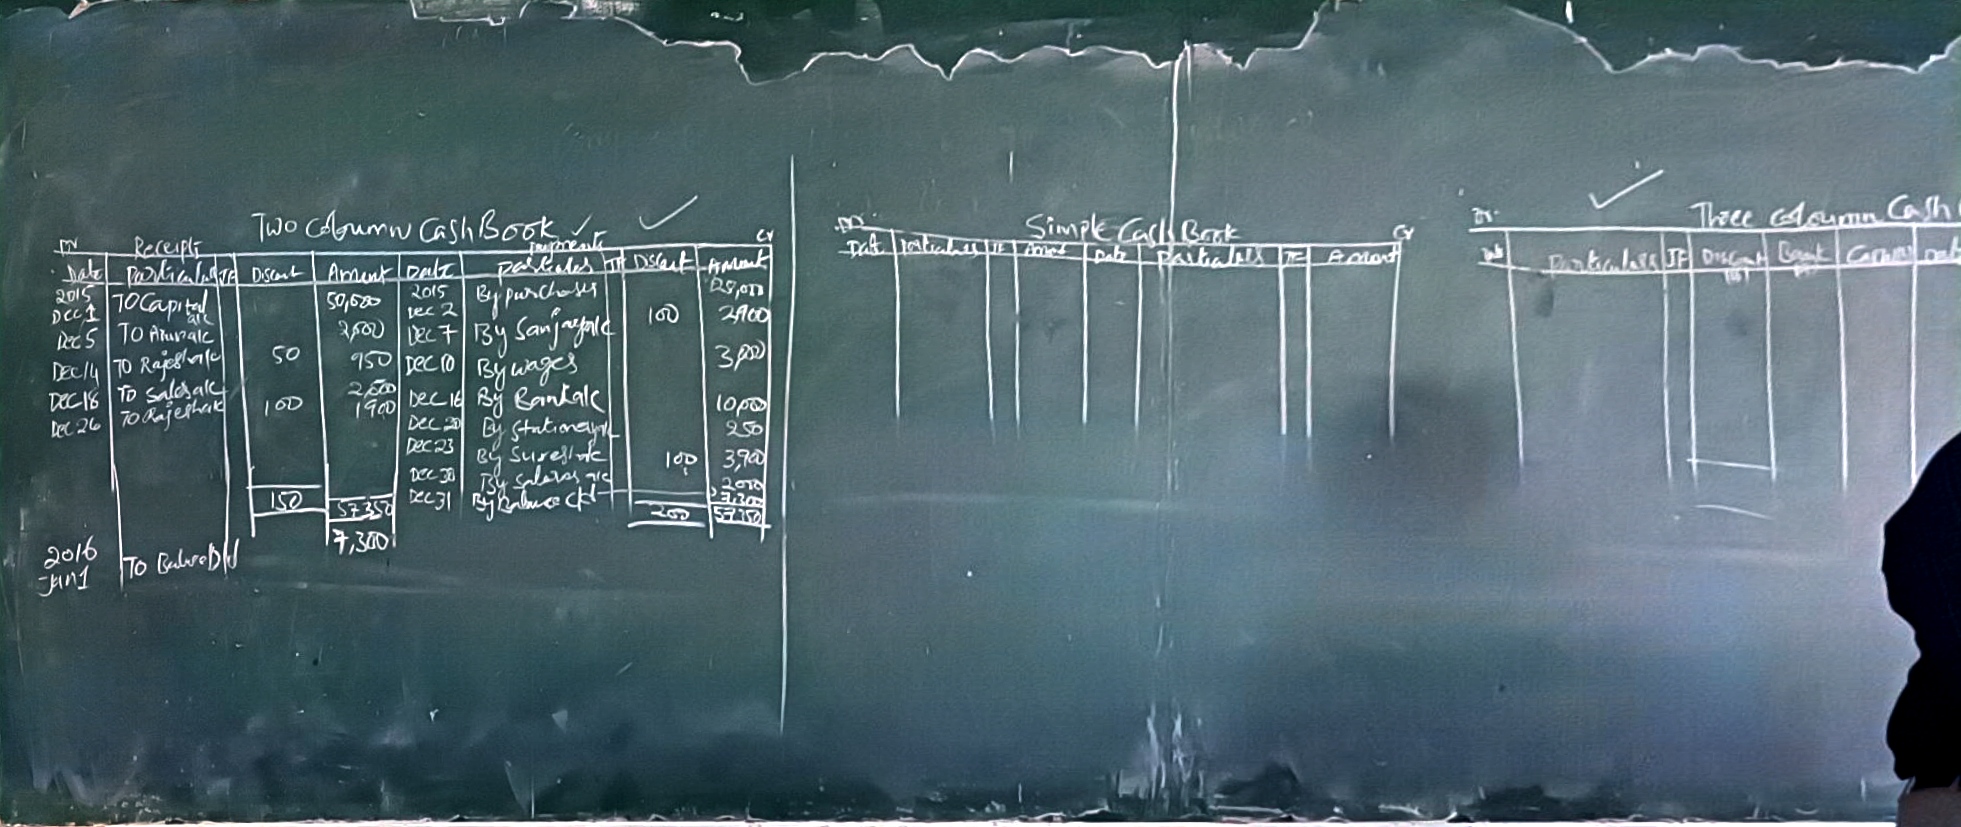 Two Column Cash Book
Dr Receipts Payments Cr
Date Particulars JF Discount Amount Date Particulars JF Discount Amount
2015 2015
Dec 1 To Capital a/c 50,000 Dec 2 By purchases
Dec 5 To Arun a/c Dec 7 By Sanjay a/c 100 2900
Dec 14 To Rajesh a/c 50 950 Dec 10 By wages 3,000
Dec 18 To Sales a/c Dec 16 By Bank a/c 10,000
Dec 26 To Rajesh a/c 100 1900 Dec 20 By Stationery 250
Dec 23 By Suresh a/c 100 3,900
Dec 30 By Salaries a/c 2000
Dec 31 By Balance c/d 7,300
150 57350 200 57350
2016
Jan 1 To Balance B/d 7,300
Simple Cash Book
Dr Cr
Date Particulars JF Amount Date Particulars JF Amount
Three Column Cash
Dr
Date Particulars JF Discount Bank Date